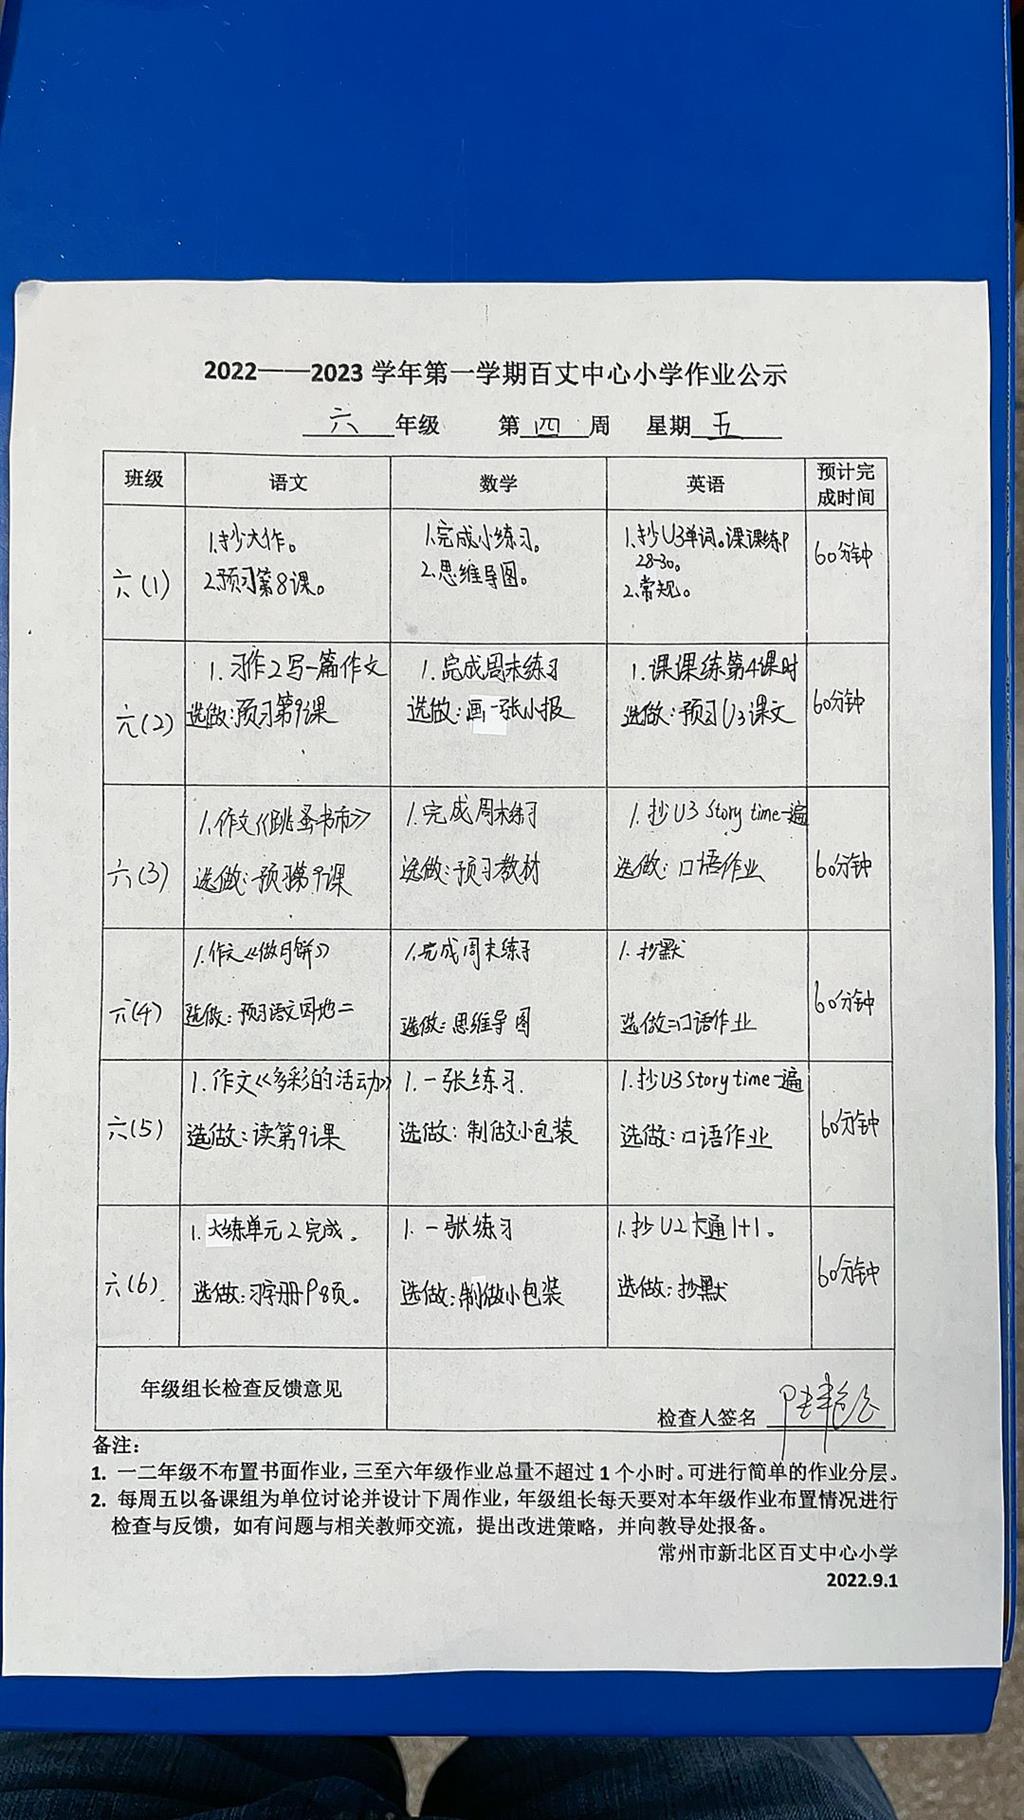 2022——2023 学年第一学期百丈中心小学作业公示
六 年级 第 四 周 星期 五
班级 语文 数学 英语 预计完成时间
六(1)
1.抄大作。
2.预习第8课。
1.完成小练习。
2.思维导图。
1.抄U3单词。课课练P
28-30。
2.常规。
60分钟
六(2)
1. 习作2写一篇作文
选做:预习第9课
1.完成周末练习
选做:画一张小报
1.课课练第4课时
选做:预习U3课文
60分钟
六(3)
1.作文《跳蚤书市》
选做:预习第9课
1.完成周末练习
选做:预习教材
1.抄U3 Story time一遍
选做:口语作业
60分钟
六(4)
1.作文《做月饼》
选做:预习语文园地二
1.完成周末练习
选做:思维导图
1.抄默
选做:口语作业
60分钟
六(5)
1.作文《多彩的活动》
选做:读第9课
1.一张练习.
选做:制做小包装
1.抄U3 Story time一遍
选做:口语作业
60分钟
六(6)
1.大练单元2完成。
选做:习字册P8页。
1.一张练习
选做:制做小包装
1.抄U2卡通1+1。
选做:抄默
60分钟
年级组长检查反馈意见
检查人签名
备注:
1. 一二年级不布置书面作业,三至六年级作业总量不超过1个小时。可进行简单的作业分层。
2. 每周五以备课组为单位讨论并设计下周作业,年级组长每天要对本年级作业布置情况进行
检查与反馈,如有问题与相关教师交流,提出改进策略,并向教导处报备。
常州市新北区百丈中心小学
2022.9.1